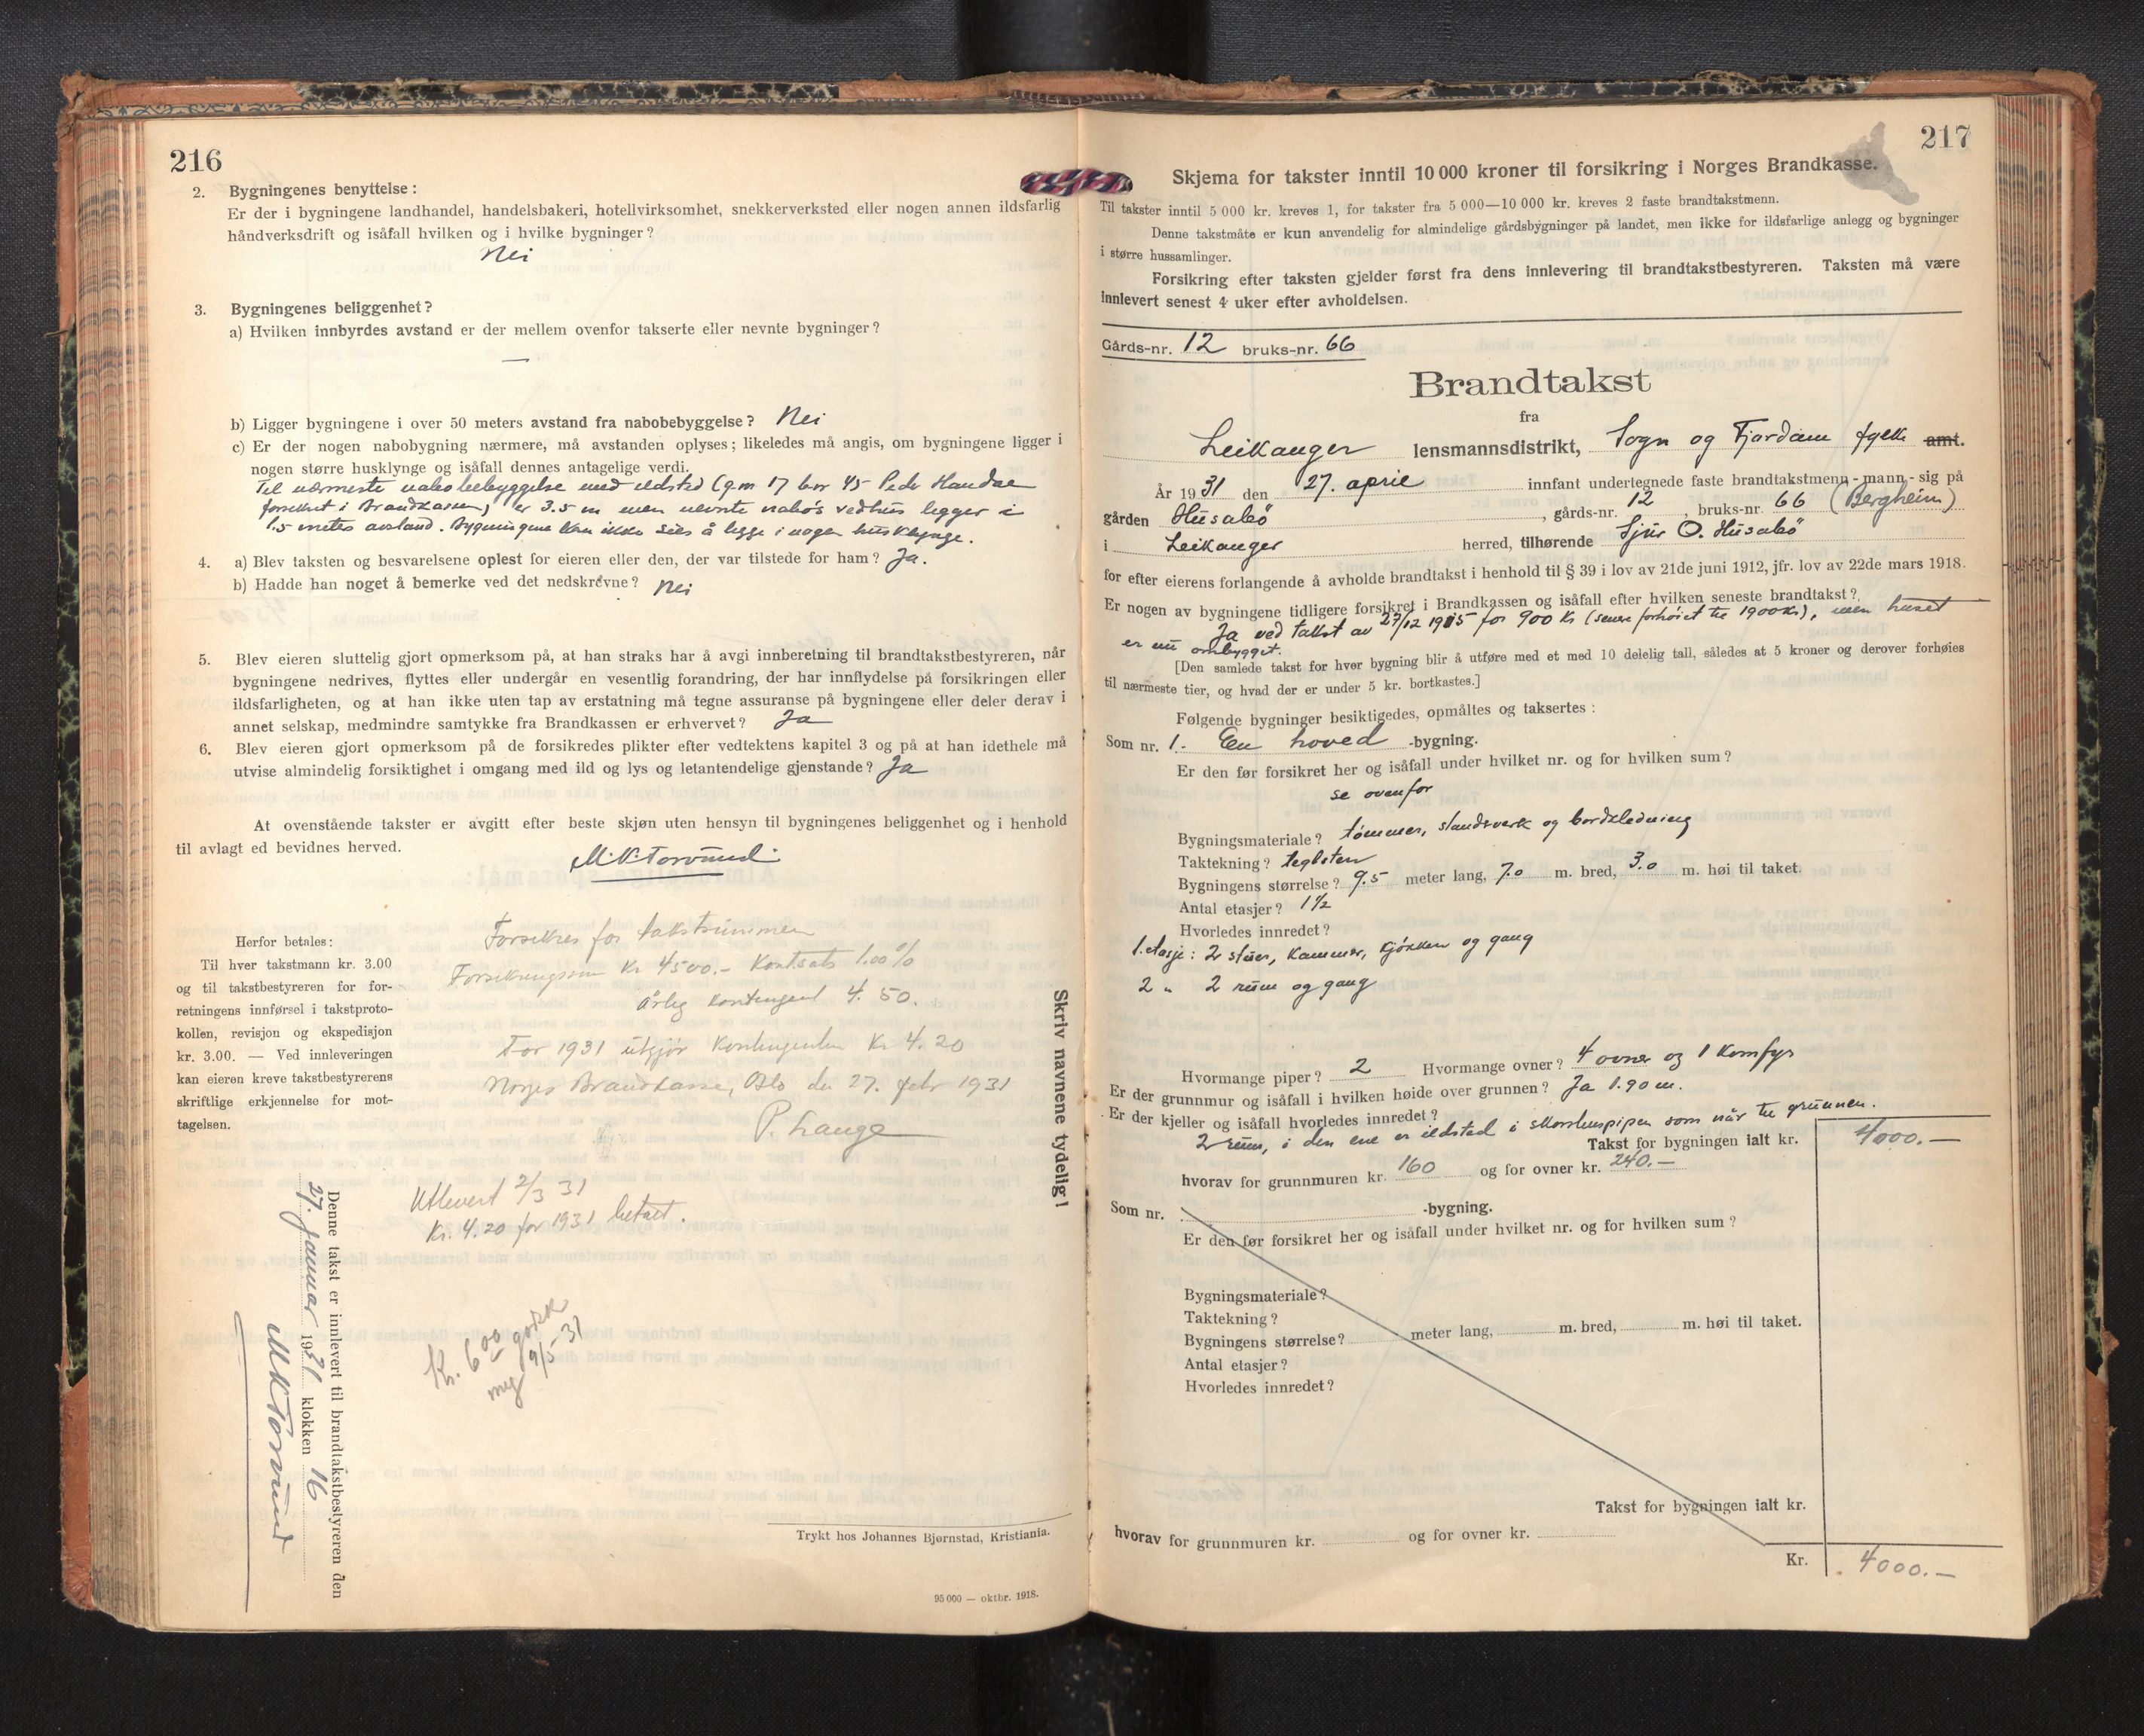 216
2. Bygningenes benyttelse:
Er der i bygningene landhandel, handelsbakeri, hotellvirksomhet, snekkerverksted eller nogen annen ildsfarlig
håndverksdrift og isåfall hvilken og i hvilke bygninger?
Nei
3. Bygningenes beliggenhet?
a) Hvilken innbyrdes avstand er der mellem ovenfor takserte eller nevnte bygninger?
—
b) Ligger bygningene i over 50 meters avstand fra nabobebyggelse? Nei
c) Er der nogen nabobygning nærmere, må avstanden oplyses; likeledes må angis, om bygningene ligger i
nogen større husklynge og isåfall dennes antagelige verdi.
Til nærmeste nabobebyggelse med ildsted (g.nr 17 bnr 45 Peder
forsikret i Brandkassen) er 3.5 m men nevnte nabos vedhus ligger i
1.5 meters avstand. Bygningene kan ikke sies å ligge i nogen husklynge.
4. a) Blev taksten og besvarelsene oplest for eieren eller den, der var tilstede for ham? Ja.
b) Hadde han noget å bemerke ved det nedskrevne? Nei
5. Blev eieren sluttelig gjort opmerksom på, at han straks har å avgi innberetning til brandtakstbestyreren, når
bygningene nedrives, flyttes eller undergår en vesentlig forandring, der har innflydelse på forsikringen eller
ildsfarligheten, og at han ikke uten tap av erstatning må tegne assuranse på bygningene eller deler derav i
annet selskap, medmindre samtykke fra Brandkassen er erhvervet? Ja
6. Blev eieren gjort opmerksom på de forsikredes plikter efter vedtektens kapitel 3 og på at han idethele må
utvise almindelig forsiktighet i omgang med ild og lys og letantendelige gjenstande? Ja
At ovenstående takster er avgitt efter beste skjøn uten hensyn til bygningenes beliggenhet og i henhold
til avlagt ed bevidnes herved.
M.K. Torvund
Herfor betales:
Til hver takstmann kr. 3.00
og til takstbestyreren for for-
retningens innførsel i takstproto-
kollen, revisjon og ekspedisjon
kr. 3.00. — Ved innleveringen
kan eieren kreve takstbestyrerens
skriftlige erkjennelse for mot-
tagelsen.
Forsikres for takstsummen
Forsikringssum Kr 4500.- Kontsats 1.00 %
Årlig kontingent 4.50.
For 1931 utgjør kontingenten Kr 4.20
Norges Brandkasse, Oslo den 27. febr 1931
P. Lange
Utlevert 2/3 31
Kr. 4.20 for 1931 betalt.
Kr. 6.00
9/5-31
Denne takst er innlevert til brandtakstbestyreren den
27. januar 1931 klokken 16
M K Torvund
Skriv navnene tydelig!
Trykt hos Johannes Bjørnstad, Kristiania.
95 000 — oktbr. 1918.
217
Skjema for takster inntil 10 000 kroner til forsikring i Norges Brandkasse.
Til takster inntil 5 000 kr. kreves 1, for takster fra 5 000—10 000 kr. kreves 2 faste brandtakstmenn.
Denne takstmåte er kun anvendelig for almindelige gårdsbygninger på landet, men ikke for ildsfarlige anlegg og bygninger
i større hussamlinger.
Forsikring efter taksten gjelder først fra dens innlevering til brandtakstbestyreren. Taksten må være
innlevert senest 4 uker efter avholdelsen.
Gårds-nr. 12 bruks-nr. 66
Brandtakst
fra
Leikanger lensmannsdistrikt, Sogn og Fjordane fylke amt.
År 1931 den 27. april innfant undertegnede faste brandtakstmenn - mann - sig på
gården Husabø, gårds-nr. 12, bruks-nr. 66 (Bergheim)
i Leikanger herred, tilhørende Sjur O. Husabö
for efter eierens forlangende å avholde brandtakst i henhold til § 39 i lov av 21de juni 1912, jfr. lov av 22de mars 1918.
Er nogen av bygningene tidligere forsikret i Brandkassen og isåfall efter hvilken seneste brandtakst?
Ja ved takst av 27/12 1915 for 900 Kr (senere forhöiet til 1900 Kr), men huset
er nu ombygget.
[Den samlede takst for hver bygning blir å utføre med et med 10 delelig tall, således at 5 kroner og derover forhøies
til nærmeste tier, og hvad der er under 5 kr. bortkastes.]
Følgende bygninger besiktigedes, opmåltes og taksertes:
Som nr. 1. En hoved -bygning.
Er den før forsikret her og isåfall under hvilket nr. og for hvilken sum?
se ovenfor
Bygningsmateriale? tömmer, standsverk og bordkledning
Taktekning? teglsten
Bygningens størrelse? 9.5 meter lang, 7.0 m. bred, 3.0 m. høi til taket.
Antal etasjer? 1½
Hvorledes innredet?
1. etasje: 2 stuer, kammer, kjökken og gang
2 " 2 rum og gang
Hvormange piper? 2 Hvormange ovner? 4 ovner og 1 komfyr
Er der grunnmur og isåfall i hvilken høide over grunnen? Ja 1.90 m.
Er der kjeller og isåfall hvorledes innredet?
2 rum, i den ene er ildsted i skorstenspipen som når til grunnen.
Takst for bygningen ialt kr. 4000.—
hvorav for grunnmuren kr. 160 og for ovner kr. 240.—
Som nr. -bygning.
Er den før forsikret her og isåfall under hvilket nr. og for hvilken sum?
Bygningsmateriale?
Taktekning?
Bygningens størrelse? meter lang, m. bred, m. høi til taket.
Antal etasjer?
Hvorledes innredet?
Takst for bygningen ialt kr.
hvorav for grunnmuren kr. og for ovner kr.
Kr. 4000.—